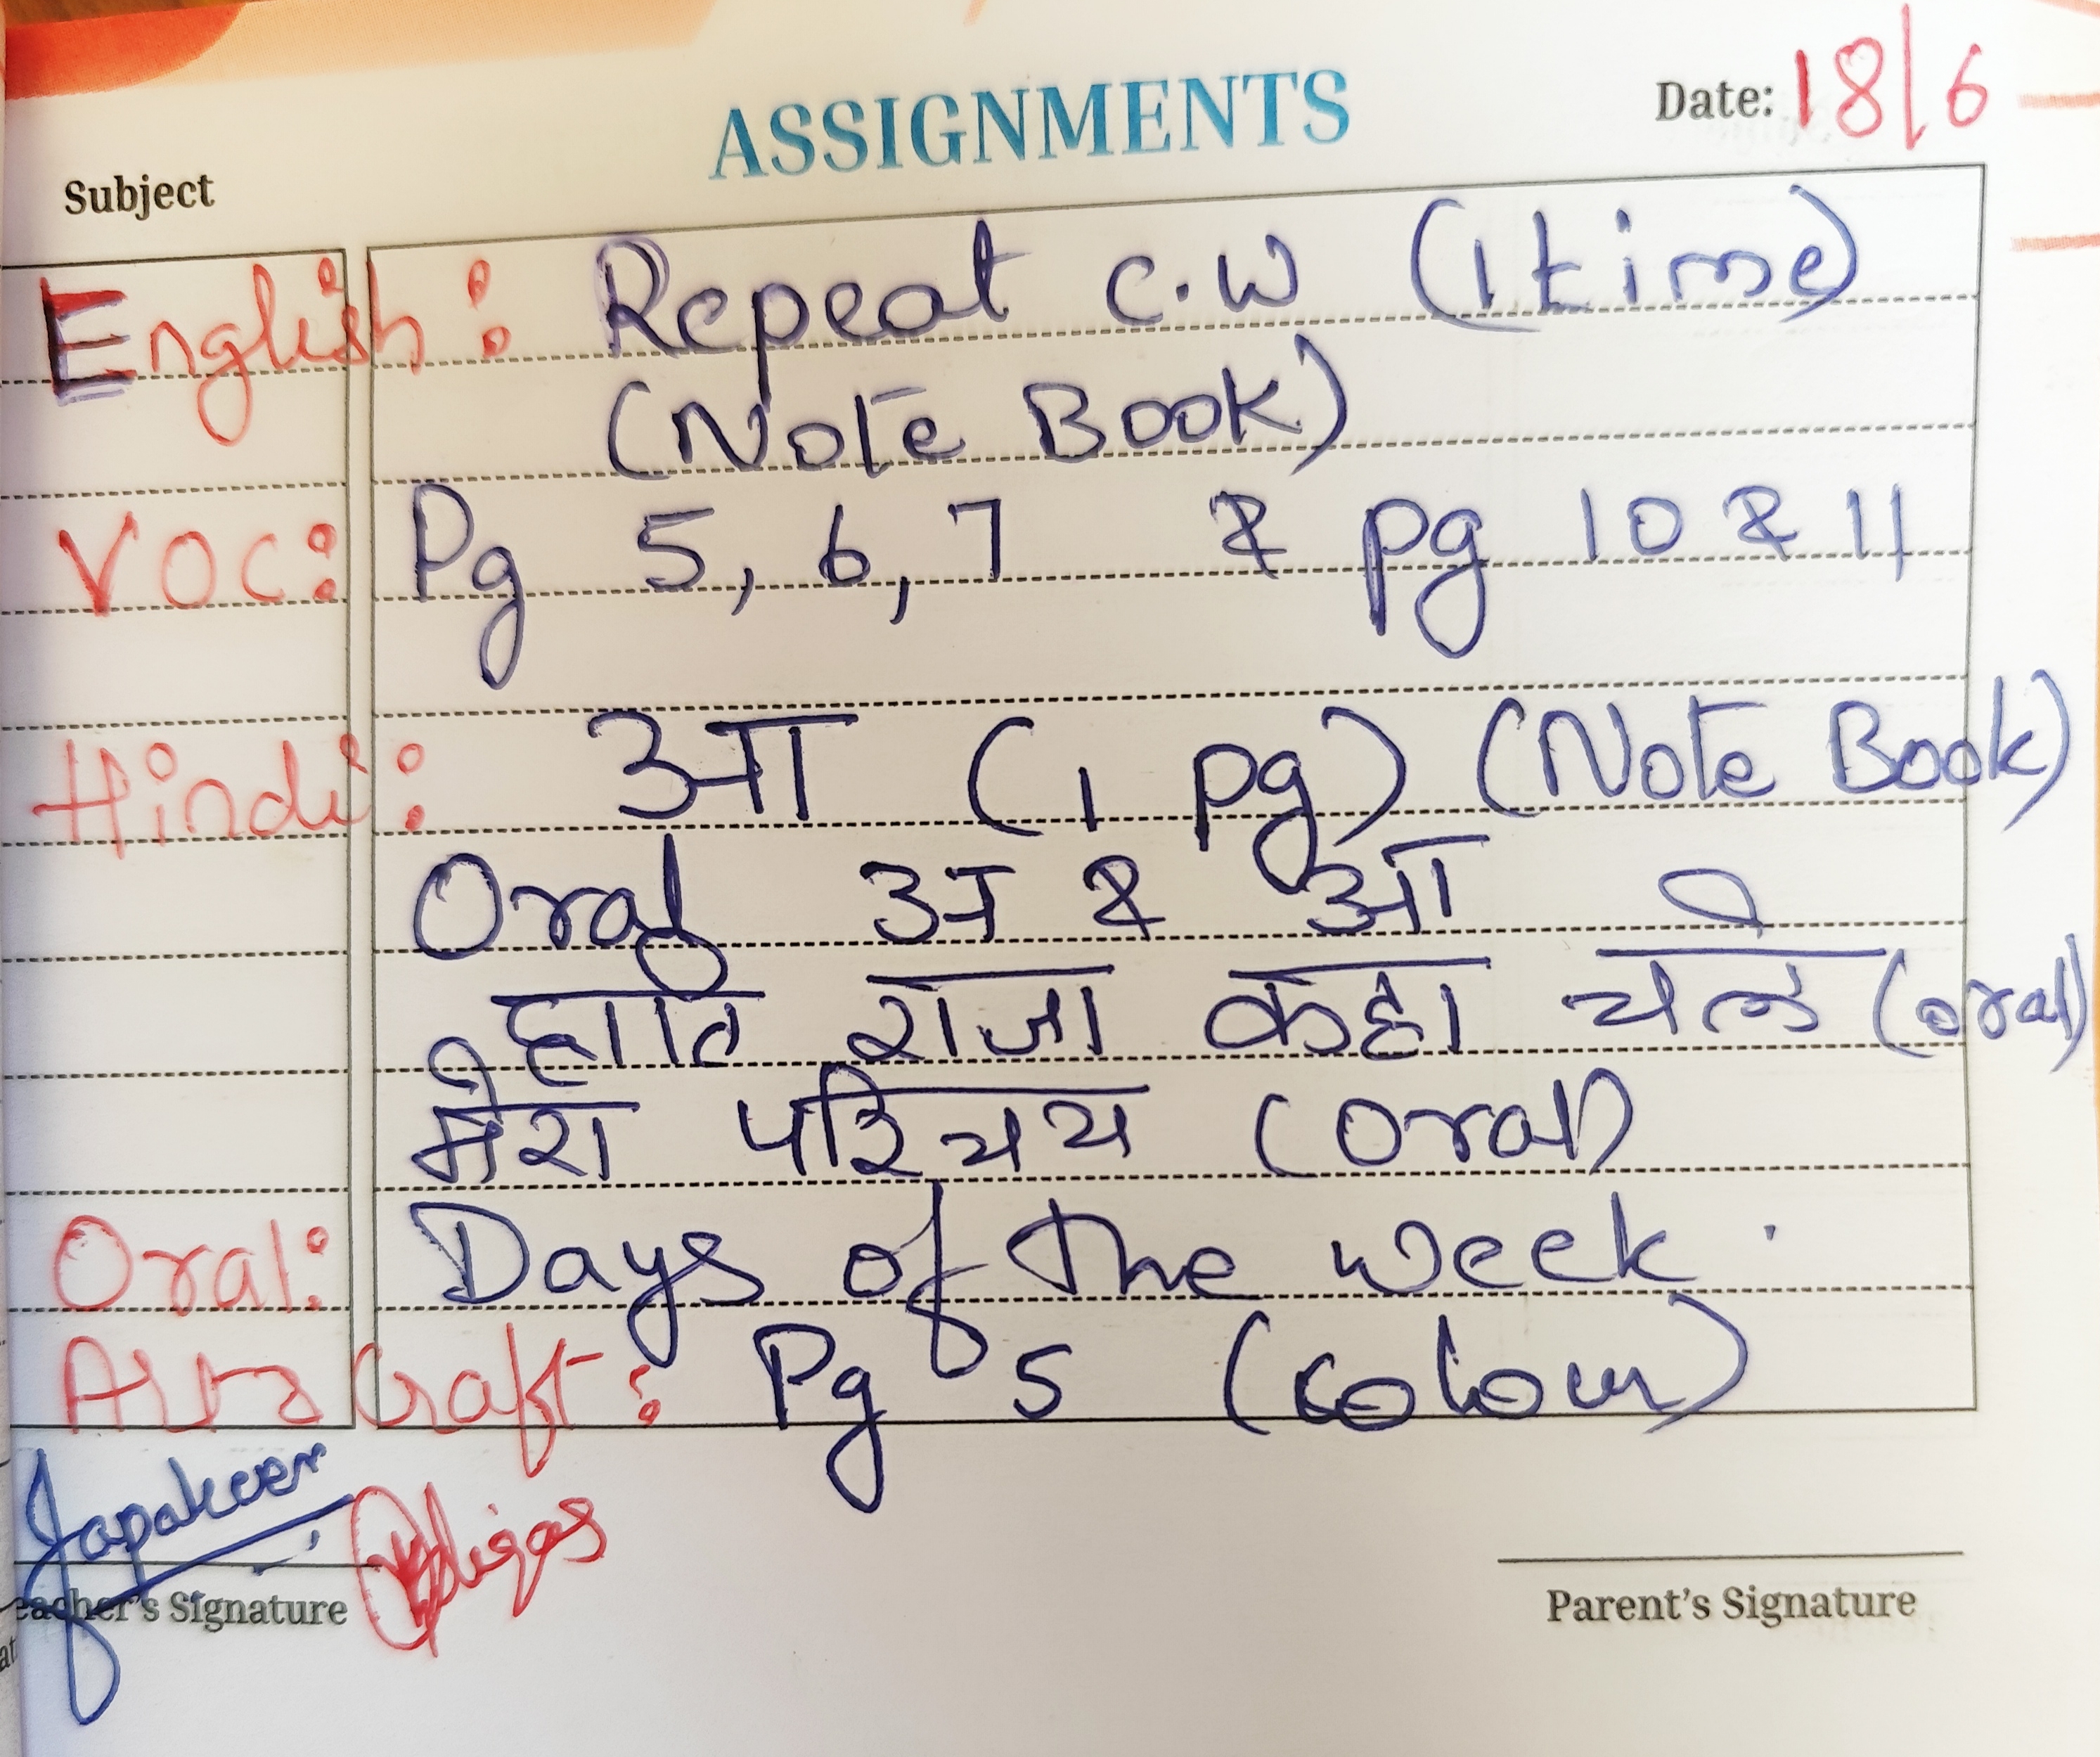 ASSIGNMENTS
Date: 18/6
Subject
English: Repeat C.W (1 time)
(Note Book)
VOC: Pg 5, 6, 7 & Pg 10 & 11
Hindi: आ (1 pg) (Note Book)
Oral अ & आ
हाति राजा कहा चले (oral)
मेरा परिचय (oral)
Oral: Days of the week.
Art & Craft: Pg 5 (colour)
Teacher's Signature
Parent's Signature